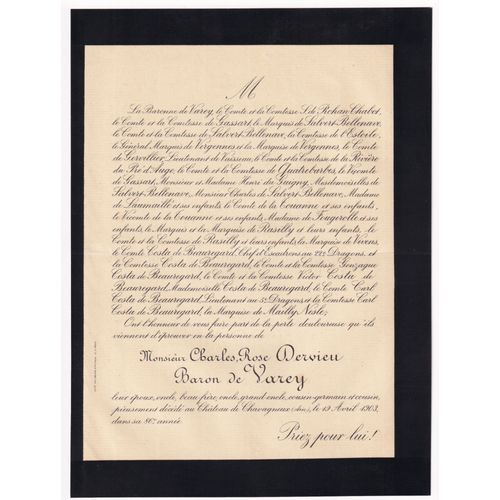 M
La Baronne de Varey, le Comte et la Comtesse L. de Rohan-Chabot,
le Comte et la Comtesse de Gassart, le Marquis de Salvert-Bellenave,
le Comte et la Comtesse de Salvert-Bellenave, la Comtesse de l'Estoile,
le Général Marquis de Vergennes et la Marquise de Vergennes, le Comte
de Lieutenant de Vaisseau, le Comte et la Comtesse de la Rivière
du Pré d'Auge, le Comte et la Comtesse de Quatrebarbes, le Vicomte
de Gassart, Monsieur et Madame Henri du Guigny, Mesdemoiselles de
Salvert-Bellenave, Monsieur Charles de Salvert-Bellenave, Madame
de Laumaillé et ses enfants, le Comte de la Touanne et ses enfants,
le Vicomte de la Touanne et ses enfants, Madame de Fougerolle et ses
enfants, le Marquis et la Marquise de Rasilly et leurs enfants, le
Comte et la Comtesse de Rasilly et leurs enfants, la Marquise de Vivens,
le Comte Costa de Beauregard, Chef d'Escadrons au 22e Dragons, et la
Comtesse Costa de Beauregard, le Comte et la Comtesse Gonzague
Costa de Beauregard, le Comte et la Comtesse Victor Costa de
Beauregard, Mademoiselle Costa de Beauregard, le Comte Carl
Costa de Beauregard, Lieutenant au 5e Dragons et la Comtesse Carl
Costa de Beauregard, la Marquise de Mailly-Nesle;
Ont l'honneur de vous faire part de la perte douloureuse qu'ils
viennent d'éprouver en la personne de
Monsieur Charles, Rose Dervieu
Baron de Varey
leur époux, oncle, beau-frère, oncle, grand-oncle, cousin-germain et cousin,
pieusement décédé au Château de Chavagneux (Ain), le 19 Avril 1903,
dans sa 86e année.
Priez pour lui!